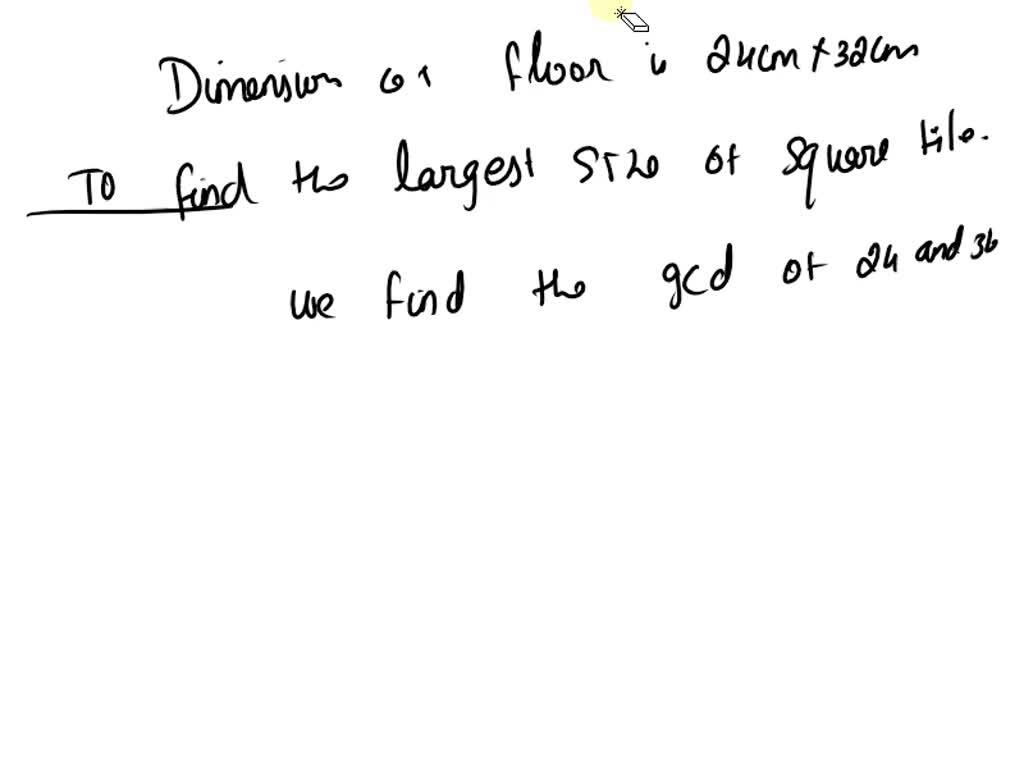 Dimension of floor is 24cm × 32cm
To find the largest size of square tile.
we find the gcd of 24 and 36